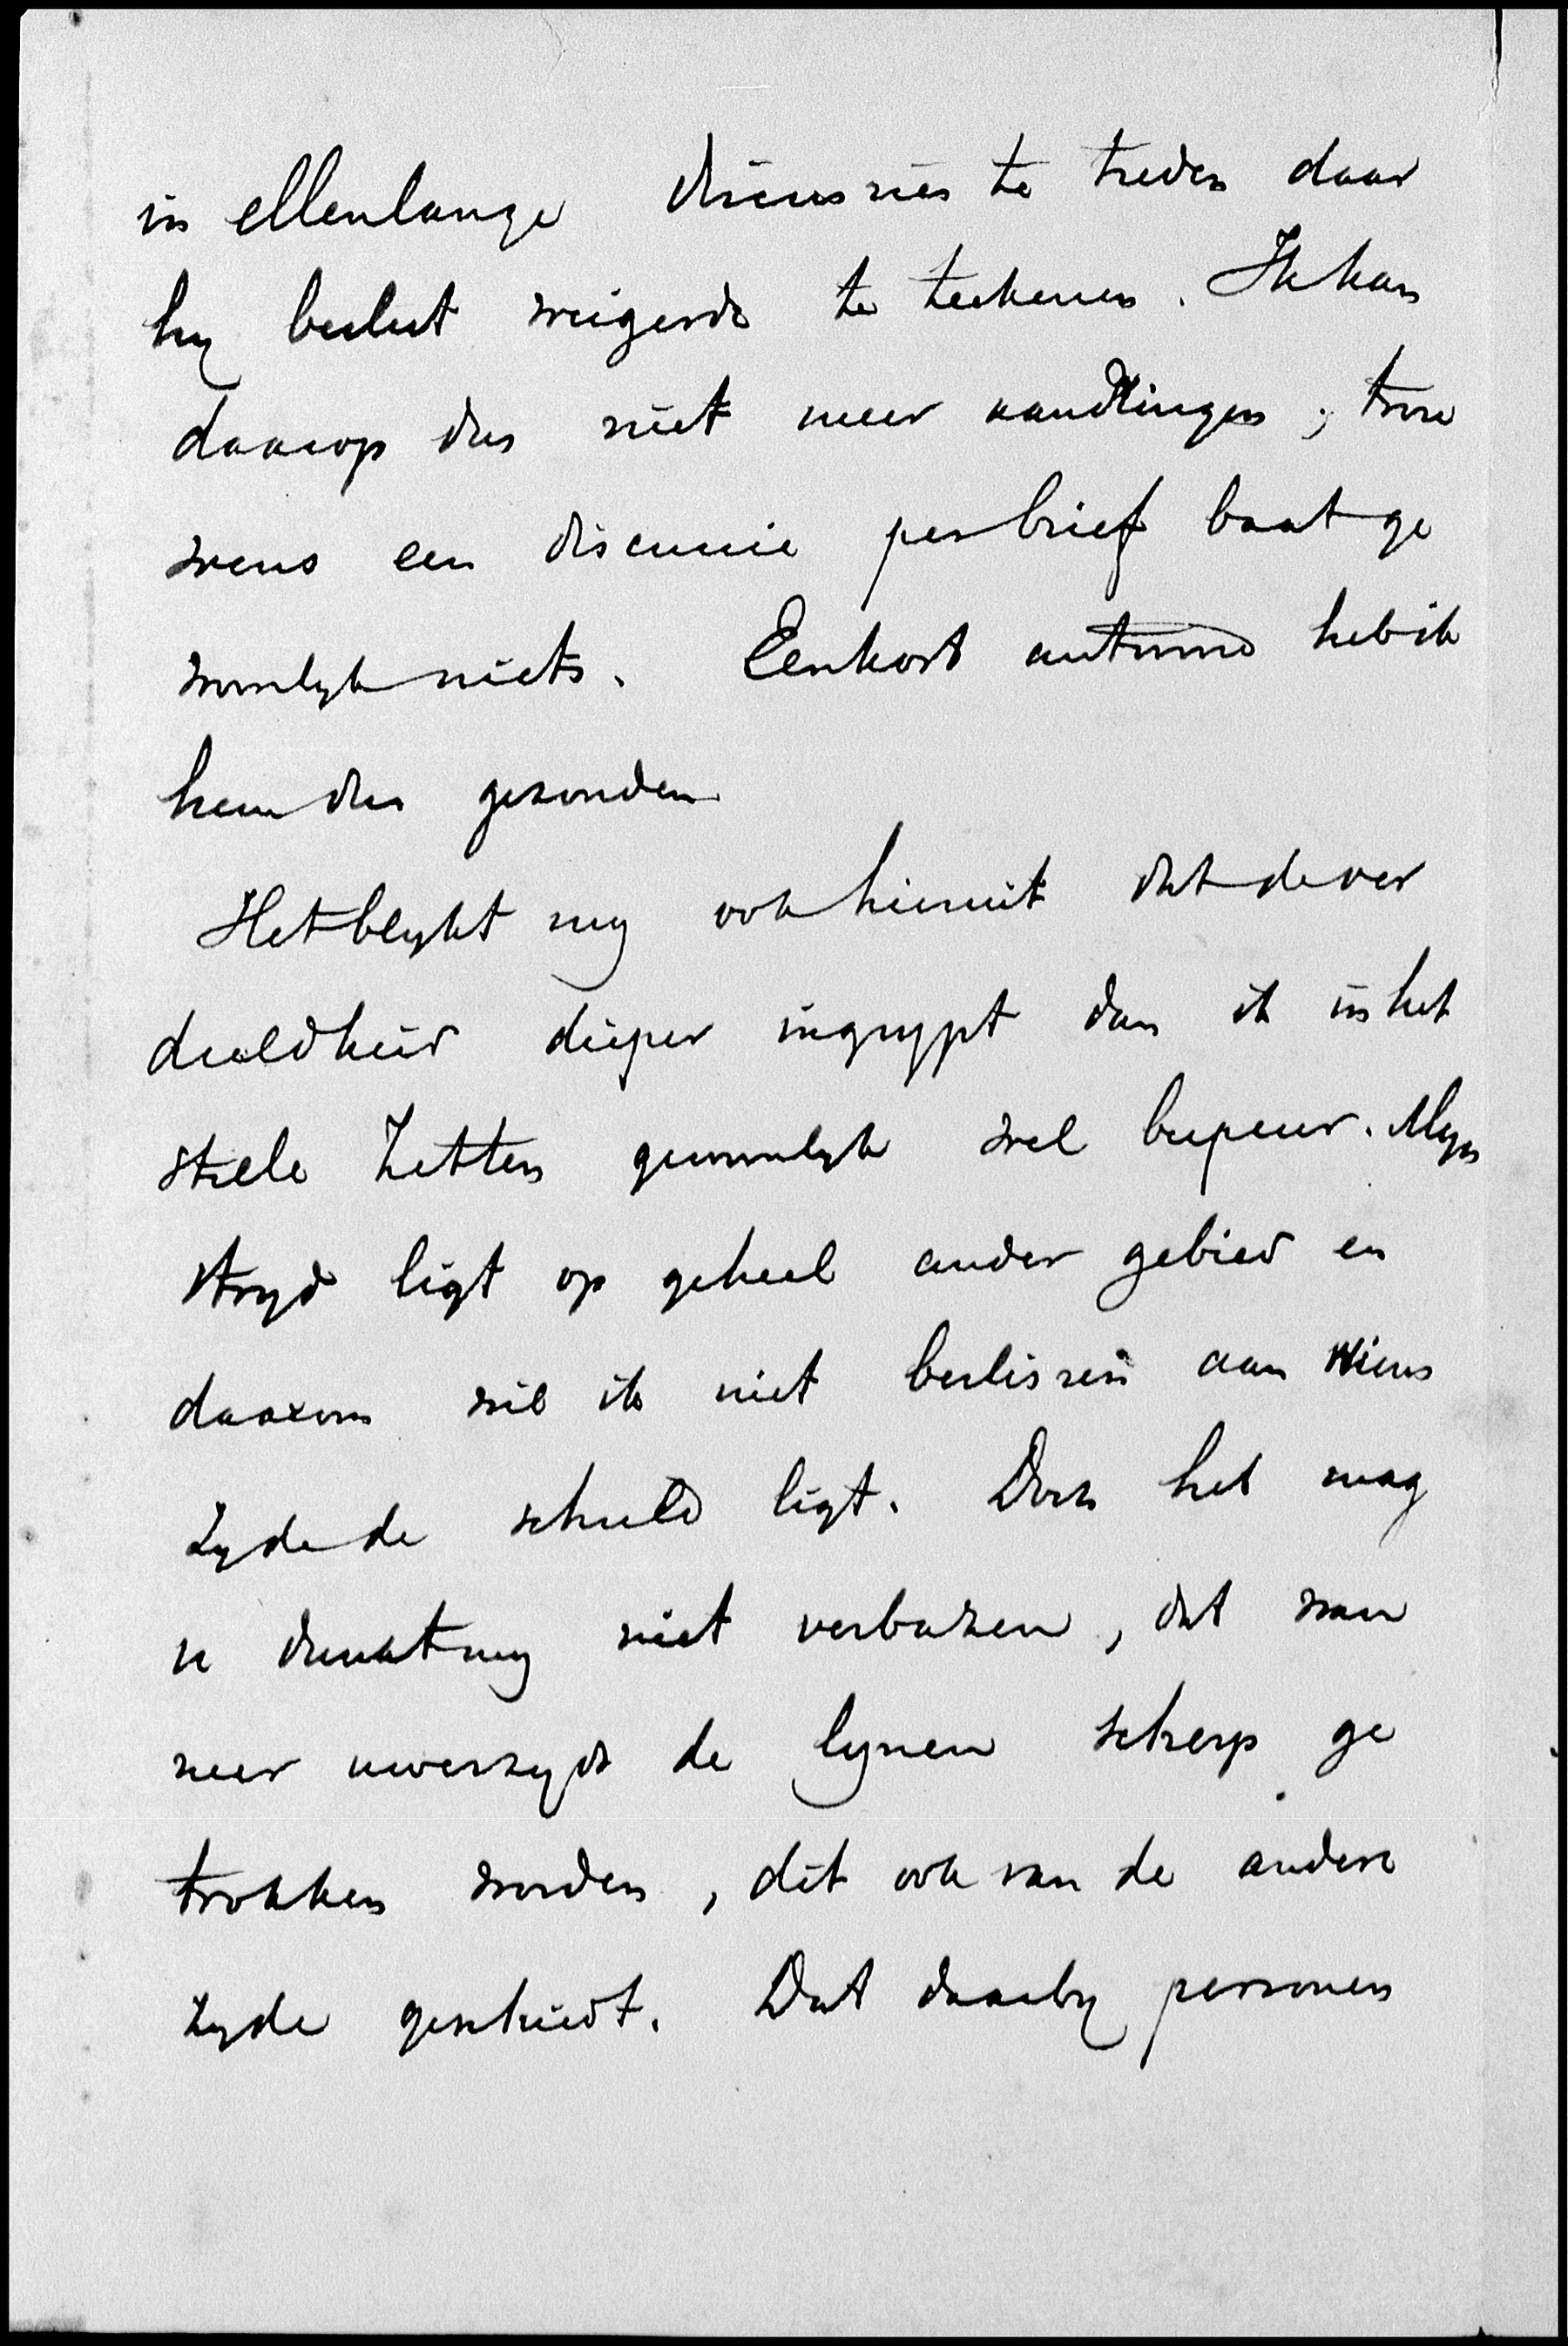 in ellenlange discussies te treden daar
hy beslist weigerde te teekenen. Ik kan
daarop dus niet meer aandringen; trou
wens een discussie per brief baat ge
woonlyk niets. Een kort antwoord heb ik
hem dus gezonden
Het blykt my ook hieruit dat de ver
deeldheid dieper ingrypt dan ik in het
stille Zetten gewoonlyk wel bespeur. Myn
stryd ligt op geheel ander gebied en
daarom wil ik niet beslissen aan wiens
zyde de schuld ligt. Doch het mag
u dunkt my niet verbazen, dat wan
neer uwerzyds de lynen scherp ge
trokken worden, dit ook van de andere
zyde geschiedt. Dat daarby personen